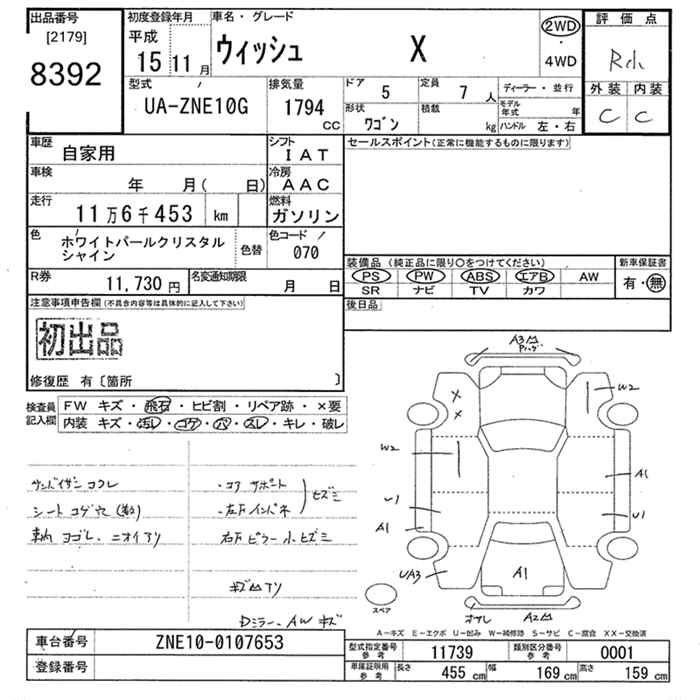 出品番号
[2179]
8392
初度登録年月
平成
15 11 月
車名・グレード
ウィッシュ X
2WD
・
4WD
評価点
外装 内装
C C
型式
UA-ZNE10G
排気量
1794
CC
ドア 5
定員 7 人
形状
ワゴン
積載
kg
ディーラー・並行
モデル年式 年
ハンドル 左・右
車歴
自家用
シフト
IAT
セールスポイント(正常に機能するものに限ります)
車検
年 月( 日)
冷房
AAC
走行
11万6千453 km
燃料
ガソリン
色
ホワイトパールクリスタル
シャイン
色替
色コード
070
装備品 (純正品に限り○をつけてください)
PS PW ABS エアB AW
SR ナビ TV カワ
新車保証書
有・無
R券
11,730 円
名変通知期限
月 日
後日品
注意事項申告欄(不具合内容等は具体的に記入して下さい)
初出品
修復歴 有〔箇所 〕
検査員
記入欄
FW キズ・飛石・ヒビ割・リペア跡・×要
内装 キズ・汚レ・コゲ・穴・スレ・キレ・破レ
サンバイザー コワレ
シート コゲ穴(数)
車内 ヨゴレ、ニオイアリ
・コア サポート
・左右インパネ
ヒズミ
右右 ピラー 小 ヒズミ
キズ凹アリ
Dミラー、AW キズ
A3凹
W2
W2
A1
U1
U1
A1
UA3
A1
A2凹
スペア
A-キズ E-エクボ U-凹み W-補修跡 S-サビ C-腐食 XX-交換済
車台番号
ZNE10-0107653
登録番号
型式指定番号
参考
11739
類別区分番号
参考
0001
車庫証明用
参考
長さ 455 cm
幅 169 cm
高さ 159 cm